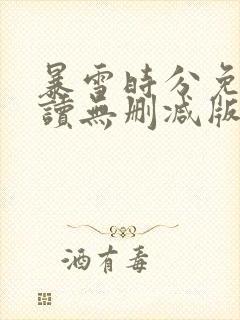 暴雪時分免
讀無刪減版
酒有毒